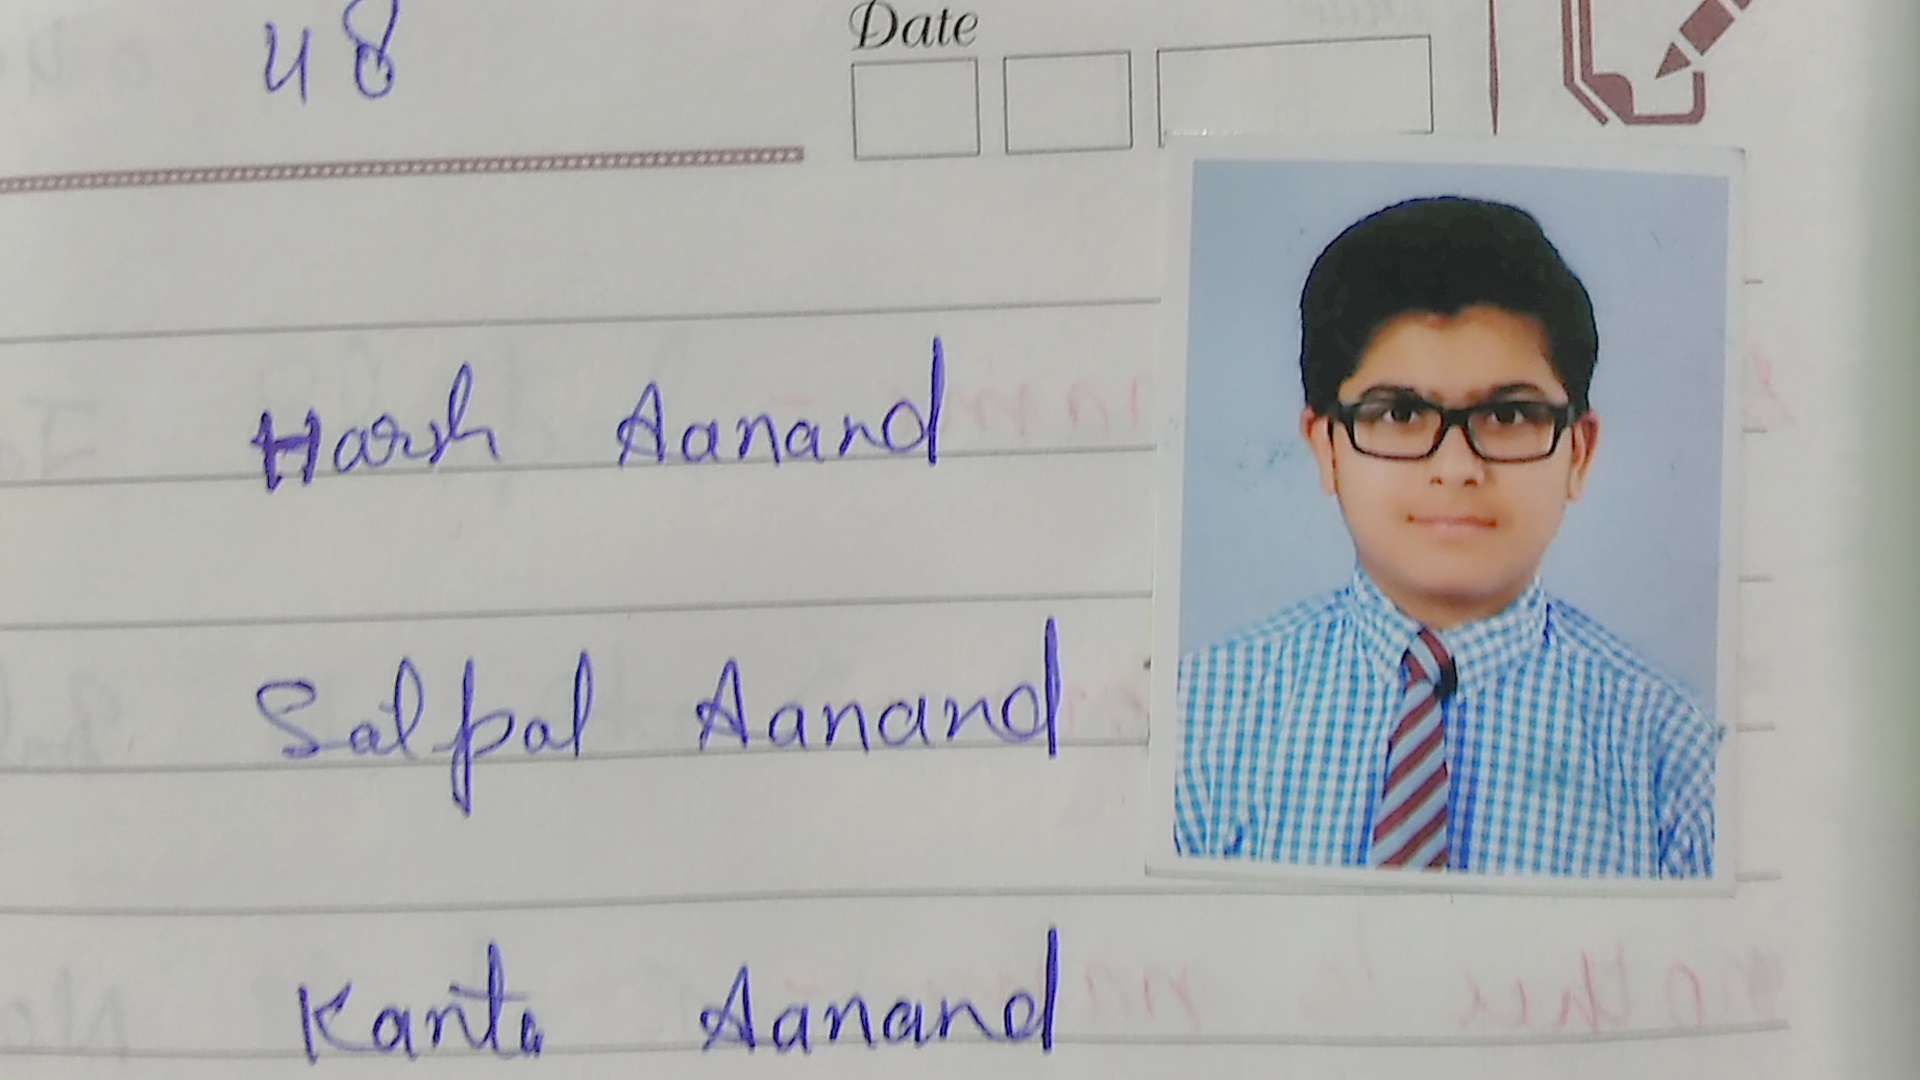 48
Date
Harsh Aanand
Satpal Aanand
Kanta Aanand